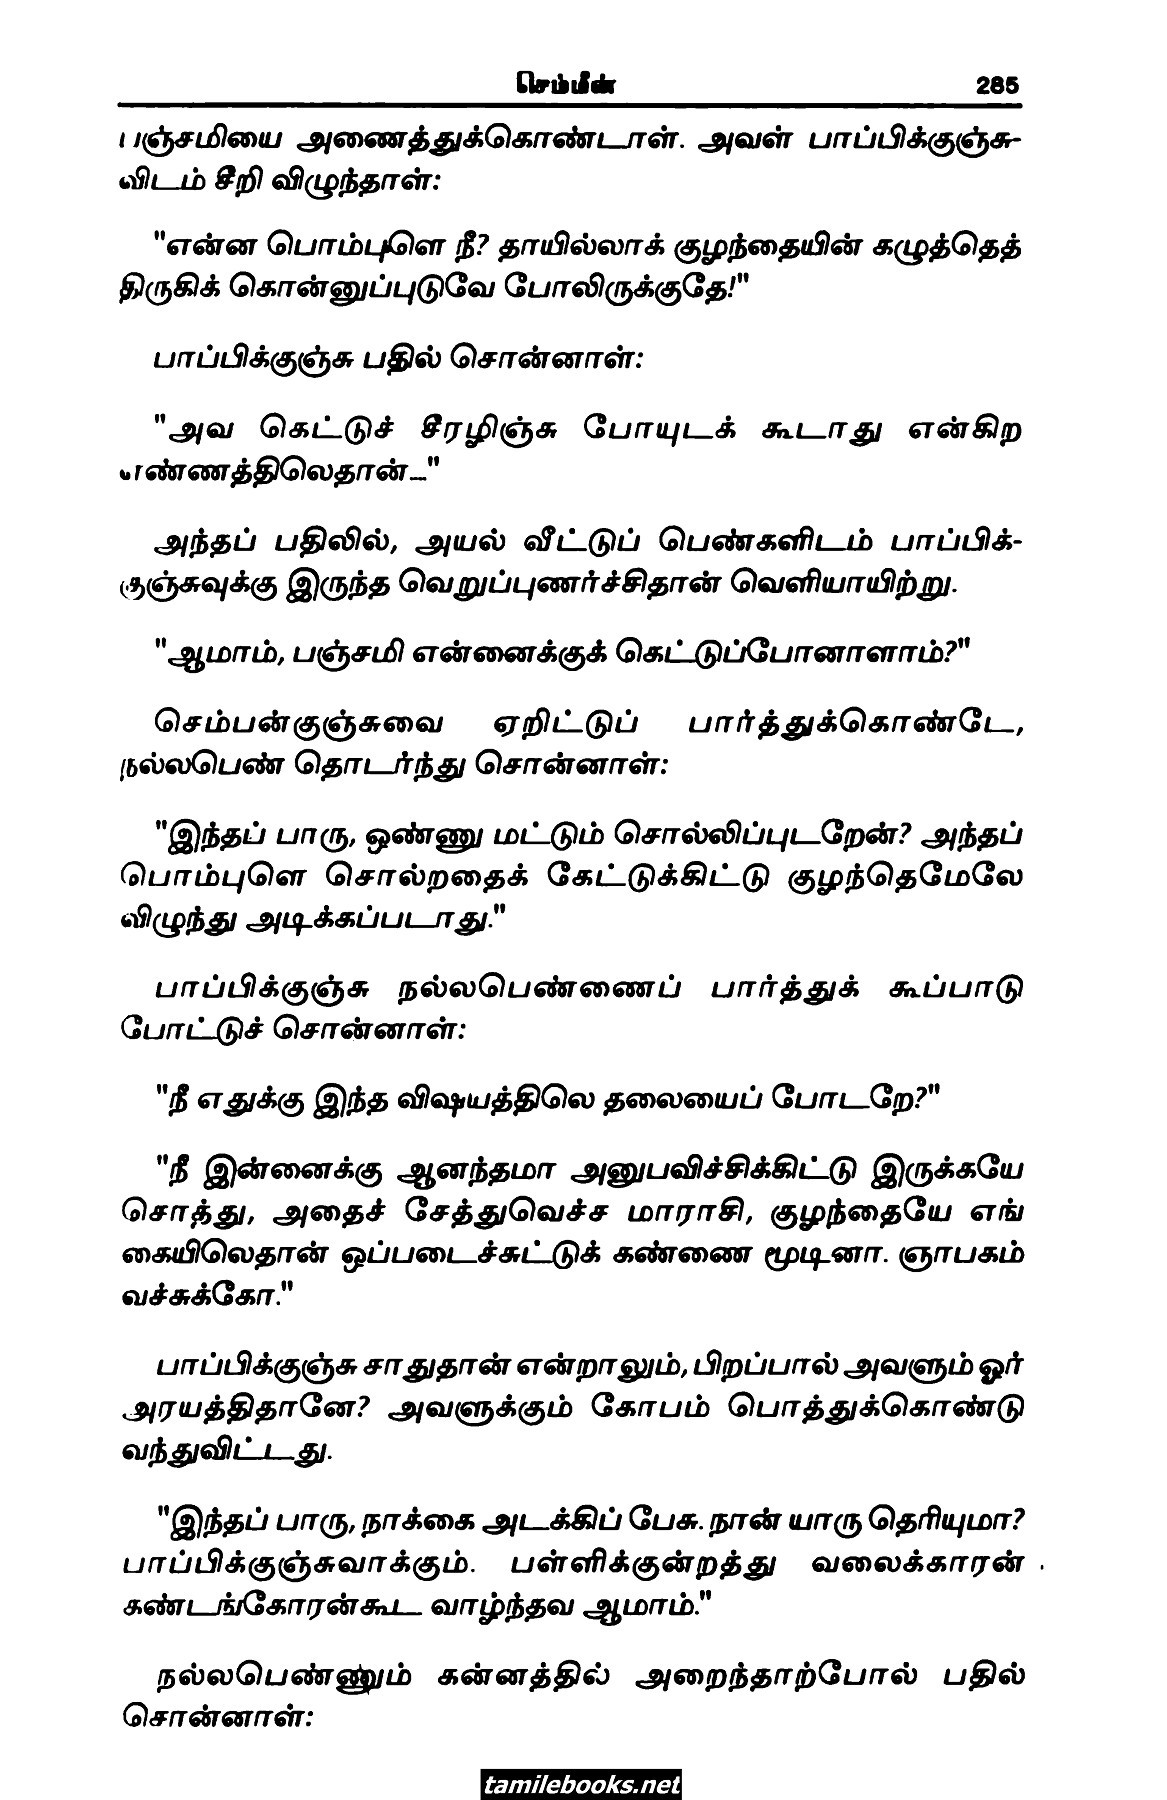 செம்மீன் 285
பஞ்சமியை அணைத்துக்கொண்டாள். அவள் பாப்பிக்குஞ்சு-
விடம் சீறி விழுந்தாள்:
"என்ன பொம்புளெ நீ? தாயில்லாக் குழந்தையின் கழுத்தெத்
திருகிக் கொன்னுப்புடுவே போலிருக்குதே!"
பாப்பிக்குஞ்சு பதில் சொன்னாள்:
"அவ கெட்டுச் சீரழிஞ்சு போயுடக் கூடாது என்கிற
எண்ணத்திலெதான்..."
அந்தப் பதிலில், அயல் வீட்டுப் பெண்களிடம் பாப்பிக்-
குஞ்சுவுக்கு இருந்த வெறுப்புணர்ச்சிதான் வெளியாயிற்று.
"ஆமாம், பஞ்சமி என்னைக்குக் கெட்டுப்போனாளாம்?"
செம்பன்குஞ்சுவை ஏறிட்டுப் பார்த்துக்கொண்டே,
நல்லபெண் தொடர்ந்து சொன்னாள்:
"இந்தப் பாரு, ஒண்ணு மட்டும் சொல்லிப்புடறேன்? அந்தப்
பொம்புளெ சொல்றதைக் கேட்டுக்கிட்டு குழந்தெமேலே
விழுந்து அடிக்கப்படாது."
பாப்பிக்குஞ்சு நல்லபெண்ணைப் பார்த்துக் கூப்பாடு
போட்டுச் சொன்னாள்:
"நீ எதுக்கு இந்த விஷயத்திலெ தலையைப் போடறே?"
"நீ இன்னைக்கு ஆனந்தமா அனுபவிச்சிக்கிட்டு இருக்கயே
சொத்து, அதைச் சேத்துவெச்ச மாராசி, குழந்தையே எங்
கையிலெதான் ஒப்படைச்சுட்டுக் கண்ணை மூடினா. ஞாபகம்
வச்சுக்கோ."
பாப்பிக்குஞ்சு சாதுதான் என்றாலும், பிறப்பால் அவளும் ஓர்
அரயத்திதானே? அவளுக்கும் கோபம் பொத்துக்கொண்டு
வந்துவிட்டது.
"இந்தப் பாரு, நாக்கை அடக்கிப் பேசு. நான் யாரு தெரியுமா?
பாப்பிக்குஞ்சுவாக்கும். பள்ளிக்குன்றத்து வலைக்காரன்
கண்டங்கோரன்கூட வாழ்ந்தவ ஆமாம்."
நல்லபெண்ணும் கன்னத்தில் அறைந்தாற்போல் பதில்
சொன்னாள்:
tamilebooks.net